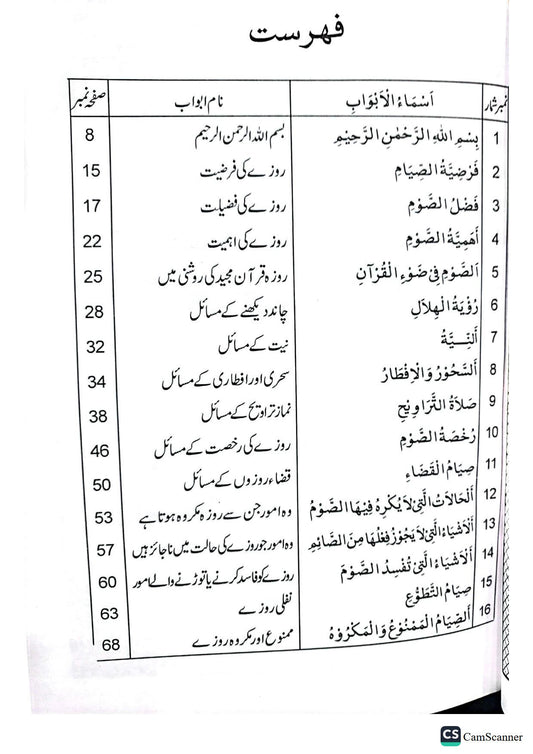 فہرست
نمبر شمار اَسْمَاءُ الْاَبْوَابِ نام ابواب صفحہ نمبر
1 بِسْمِ اللهِ الرَّحْمٰنِ الرَّحِيْمِ بسم اللہ الرحمن الرحیم 8
2 فَرْضِيَّةُ الصِّيَامِ روزے کی فرضیت 15
3 فَضْلُ الصَّوْمِ روزے کی فضیلت 17
4 أَهَمِيَّةُ الصَّوْمِ روزے کی اہمیت 22
5 اَلصَّوْمُ فِیْ ضَوْءِ الْقُرْآنِ روزہ قرآن مجید کی روشنی میں 25
6 رُؤْيَةُ الْهِلَالِ چاند دیکھنے کے مسائل 28
7 أَلنِّـــيَّةُ نیت کے مسائل 32
8 أَلسَّحُوْرُ وَالْاِفْطَارُ سحری اور افطاری کے مسائل 34
9 صَلَاةُ التَّرَاوِيْحِ نماز تراویح کے مسائل 38
10 رُخْصَةُ الصَّوْمِ روزے کی رخصت کے مسائل 46
11 صِيَامُ الْقَضَاءِ قضاء روزوں کے مسائل 50
12 أَلْحَالَاتُ الَّتِیْ لَا يَكْرَهُ فِيْهَا الصَّوْمُ وہ امور جن سے روزہ مکروہ ہوتا ہے 53
13 أَلْاَشْيَاءُ الَّتِیْ لَا يَجُوْزُ فِعْلُهَا مِنَ الصَّائِمِ وہ امور جو روزے کی حالت میں ناجائز ہیں 57
14 أَلْاَشْيَاءُ الَّتِیْ تُفْسِدُ الصَّوْمَ روزے کو فاسد کرنے یا توڑنے والے امور 60
15 صِيَامُ التَّطَوُّعِ نفلی روزے 63
16 أَلصِّيَامُ الْمَمْنُوْعُ وَالْمَكْرُوْهُ ممنوع اور مکروہ روزے 68
CS CamScanner